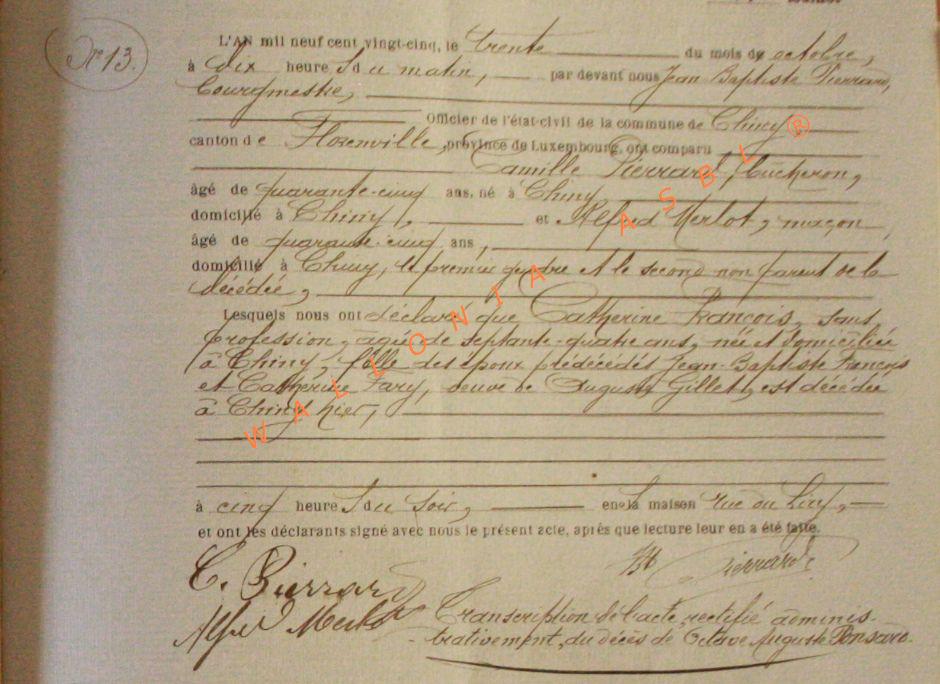 N° 13.
L'AN mil neuf cent vingt-cinq, le trente du mois de octobre,
à dix heures du matin, par devant nous Jean Baptiste Pierrard,
Bourgmestre,
Officier de l'état-civil de la commune de Chiny
canton de Florenville, province de Luxembourg, ont comparu
Camille Pierrard, bûcheron,
âgé de quarante-cinq ans, né à Chiny
domicilié à Chiny, et Alfred Merlot, maçon
âgé de quarante-cinq ans,
domicilié à Chiny, le premier gendre et le second non parent de la
décédée,
Lesquels nous ont déclaré que Catherine François, sans
profession, âgée de septante-quatre ans, née et domiciliée
à Chiny, fille des époux prédécédés Jean-Baptiste François
et Catherine Fary, veuve de Auguste Gillet, est décédée
à Chiny hier,
à cinq heures du soir, en la maison rue du
et ont les déclarants signé avec nous le présent acte, après que lecture leur en a été faite.
C. Pierrard
JB Pierrard
Alfred Merlot
Transcription de l'acte, rectifié adminis-
trativement, du décès de Octave Auguste
WALLONIA ASBL ®